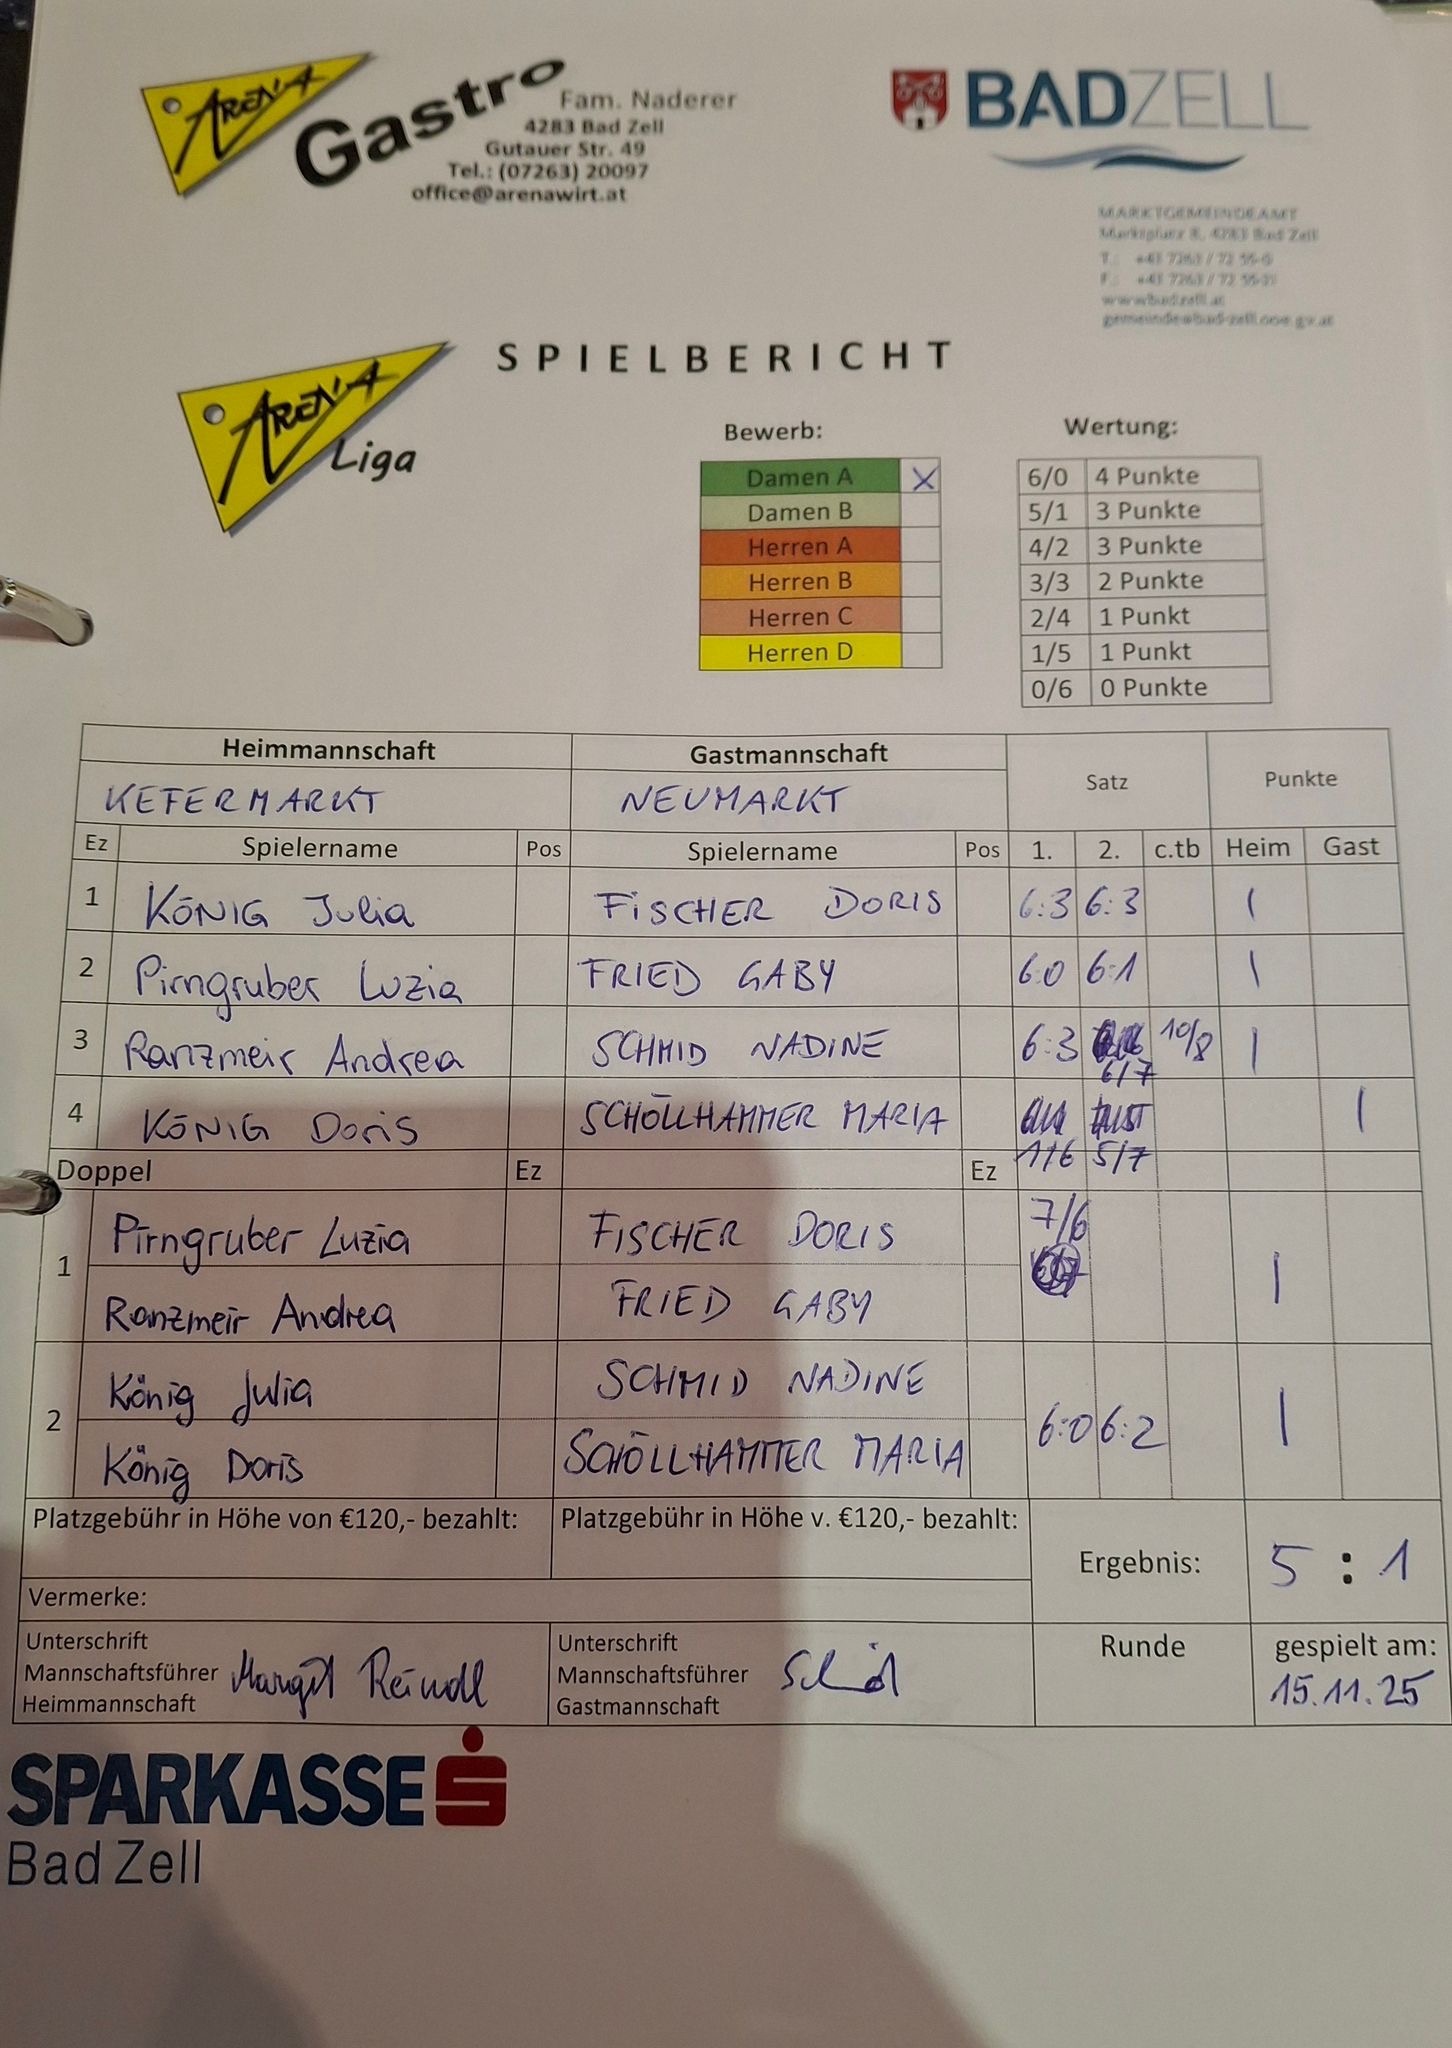 ARENA Gastro
Fam. Naderer
4283 Bad Zell
Gutauer Str. 49
Tel.: (07263) 20097
office@arenawirt.at
BADZELL
MARKTGEMEINDEAMT
Marktplatz 8, 4283 Bad Zell
T.: +43 7263 / 72 55-0
F.: +43 7263 / 72 55-
www.badzell.at
gemeinde@bad-zell.ooe.gv.at
ARENA Liga
SPIELBERICHT
Bewerb:
Damen A X
Damen B
Herren A
Herren B
Herren C
Herren D
Wertung:
6/0 4 Punkte
5/1 3 Punkte
4/2 3 Punkte
3/3 2 Punkte
2/4 1 Punkt
1/5 1 Punkt
0/6 0 Punkte
Heimmannschaft Gastmannschaft Satz Punkte
KEFERMARKT NEUMARKT
Ez Spielername Pos Spielername Pos 1. 2. c.tb Heim Gast
1 KÖNIG Julia FiSCHER DORIS 6:3 6:3 |
2 Pirngruber Luzia FRIED GABY 6:0 6:1 |
3 Ranzmeir Andrea SCHMID NADINE 6:3 6/7 10/8 |
4 KÖNIG Doris SCHÖLLHAMMER MARIA 1/6 5/7 |
Doppel Ez Ez
1 Pirngruber Luzia FISCHER DORIS 7/6
Ranzmeir Andrea FRIED GABY |
2 König Julia SCHMID NADINE
König Doris SCHÖLLHAMMER MARIA 6:0 6:2 |
Platzgebühr in Höhe von €120,- bezahlt: Platzgebühr in Höhe v. €120,- bezahlt:
Ergebnis: 5 : 1
Vermerke:
Unterschrift Mannschaftsführer Heimmannschaft Margit Reindl
Unterschrift Mannschaftsführer Gastmannschaft
Runde
gespielt am: 15.11.25
SPARKASSE
Bad Zell